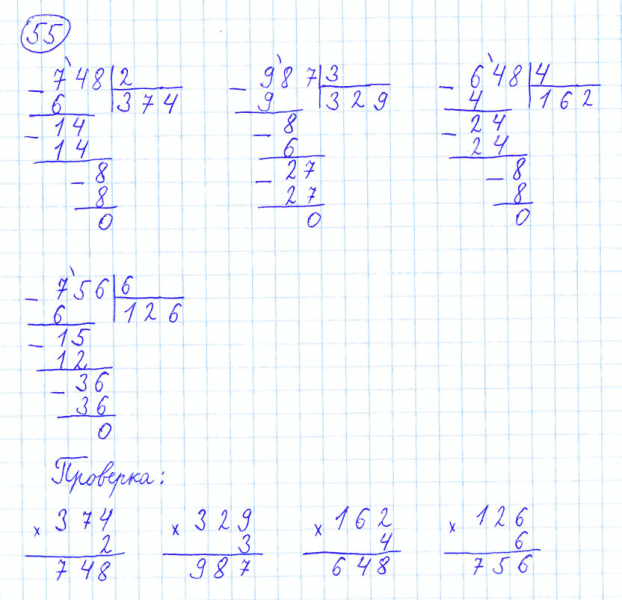 55
7'48 2
- 6 374
14
- 14
8
- 8
0
9'87 3
- 9 329
8
- 6
27
- 27
0
6'48 4
- 4 162
24
- 24
8
- 8
0
7'56 6
- 6 126
15
- 12
36
- 36
0
Проверка:
× 374
2
748
× 329
3
987
× 162
4
648
× 126
6
756